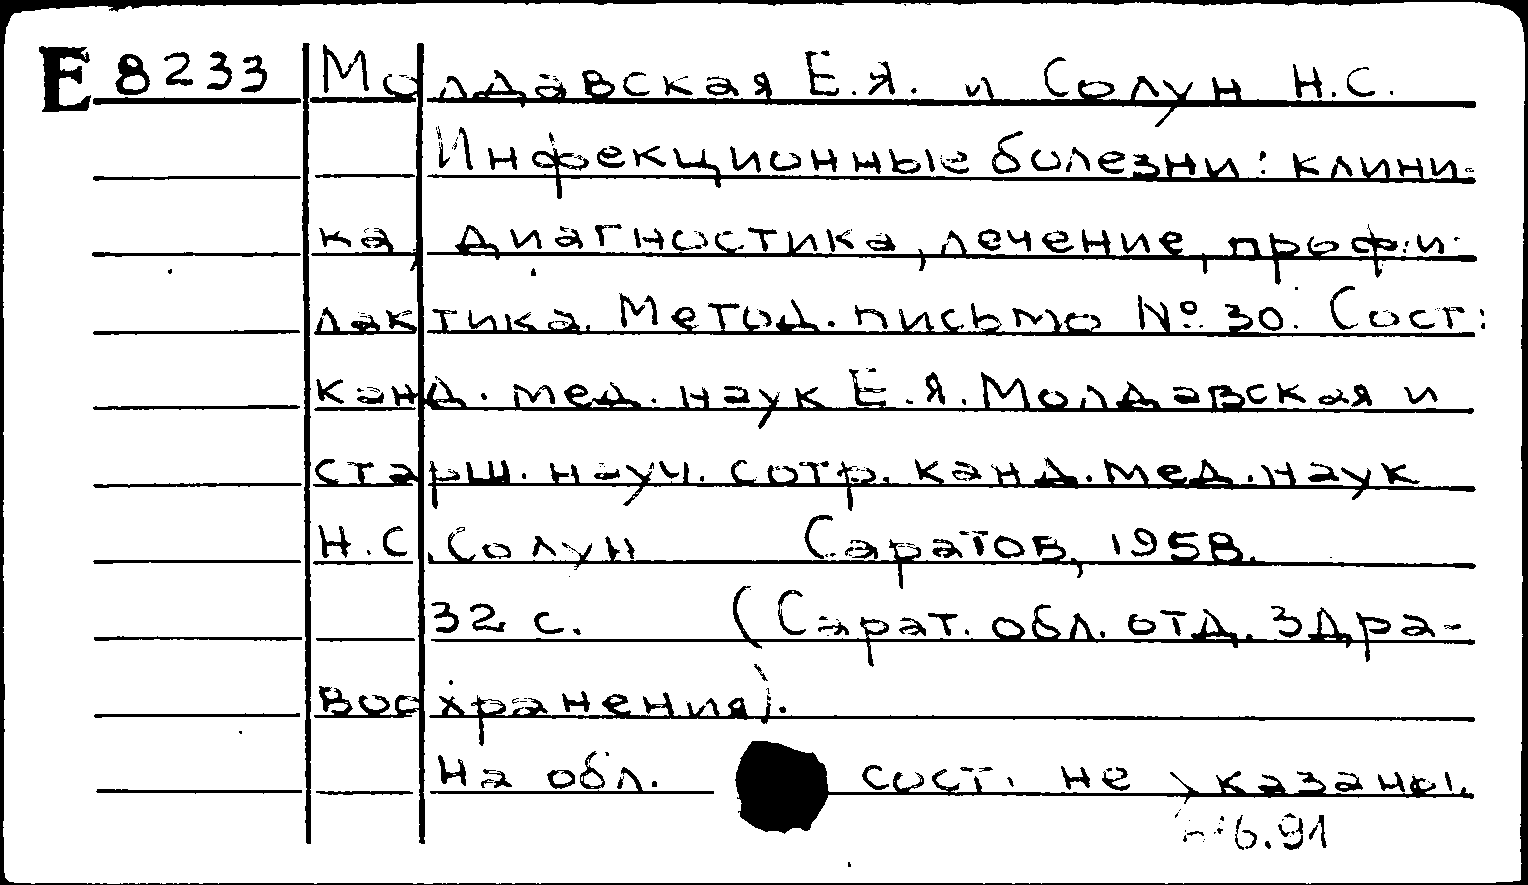 Е 8233 Молдавская Е.Я. и Солун Н.С.
Инфекционные болезни: клини-
ка, диагностика, лечение, профи-
лактика. Метод. письмо № 30. Сост.:
канд. мед. наук Е.Я. Молдавская и
старш. науч. сотр. канд. мед. наук
Н.С. Солун Саратов, 1958.
32 с. (Сарат. обл. отд. здра-
воохранения).
На обл. сост. не указаны.
6.91